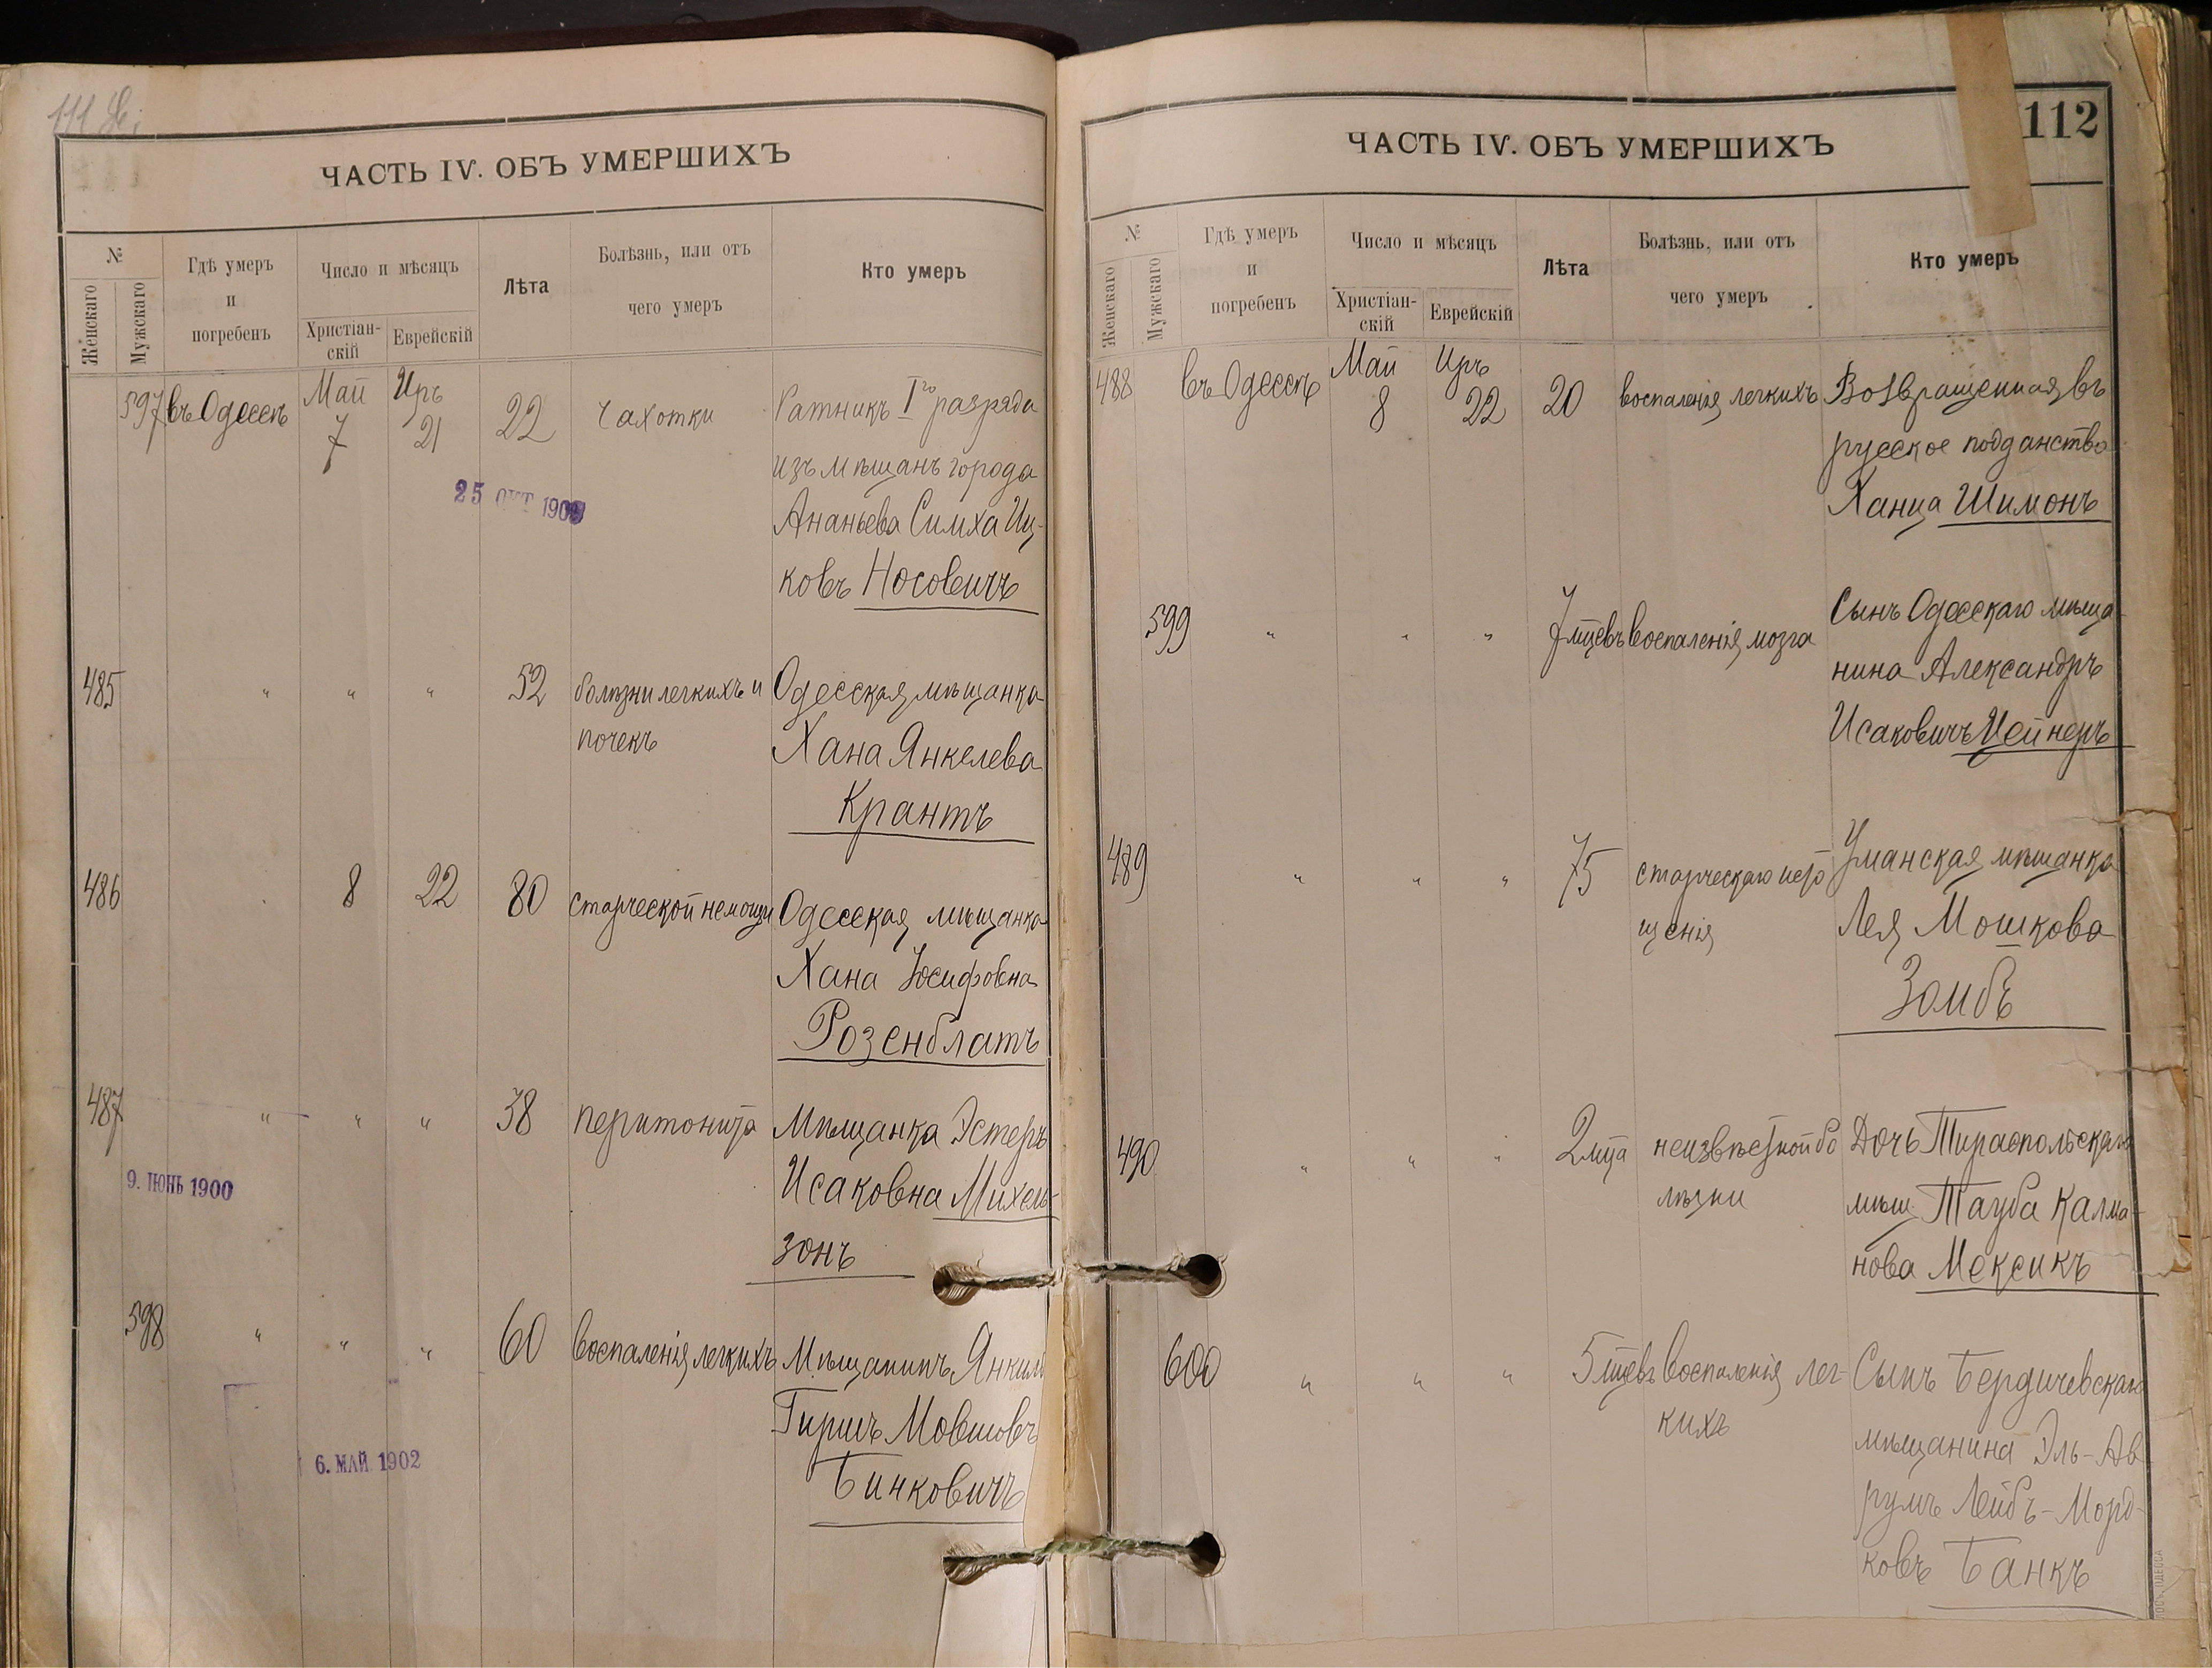 111 об.
ЧАСТЬ IV. ОБЪ УМЕРШИХЪ
№
Женскаго
Мужскаго
Гдѣ умеръ
и
погребенъ
Число и мѣсяцъ
Христіан-
скій
Еврейскій
Лѣта
Болѣзнь, или отъ
чего умеръ
Кто умеръ
597 въ Одессѣ Май 7 Иръ 21 22 чахотки Ратникъ I го разряда
изъ мѣщанъ города
25 ОКТ 190
Ананьева Симха Иц-
ковъ Носовичъ
485 " " " 52 болѣзни легкихъ и Одесская мѣщанка
почекъ Хана Янкелева
Крантъ
486 8 22 80 старческой немощи Одесская мѣщанка
Хана Іосифовна
Розенблатъ
487 " " " 38 перитонита Мѣщанка Эстеръ
9. ІЮНЬ 1900 Исаковна Михель-
зонъ
598 " " " 60 воспаленія легкихъ Мѣщанинъ Янкель
Гиршъ Мовшовъ
6. МАЙ 1902
Бинковичъ
112
ЧАСТЬ IV. ОБЪ УМЕРШИХЪ
№
Женскаго
Мужскаго
Гдѣ умеръ
и
погребенъ
Число и мѣсяцъ
Христіан-
скій
Еврейскій
Лѣта
Болѣзнь, или отъ
чего умеръ
Кто умеръ
488 въ Одессѣ Май 8 Иръ 22 20 воспаленія легкихъ Возвращенная въ
русское подданство
Ханца Шимонъ
599 " " " 7 мцевъ воспаленія мозга Сынъ Одесскаго мѣща-
нина Александръ
Исаковичъ Цейнеръ
489 " " " 75 старческаго Уманская мѣщанка
щенія Лея Мошкова
Зомбъ
490 " " " 2 мца неизвѣстной бо Дочь Тираспольскаго
лѣзни мѣщ. Тауба Калма-
нова Мексикъ
600 " " " 5 мцевъ воспаленія лег- Сынъ Бердичевскаго
кихъ мѣщанина Эль-Ав
румъ Лейбъ-Морд-
ковъ Банкъ